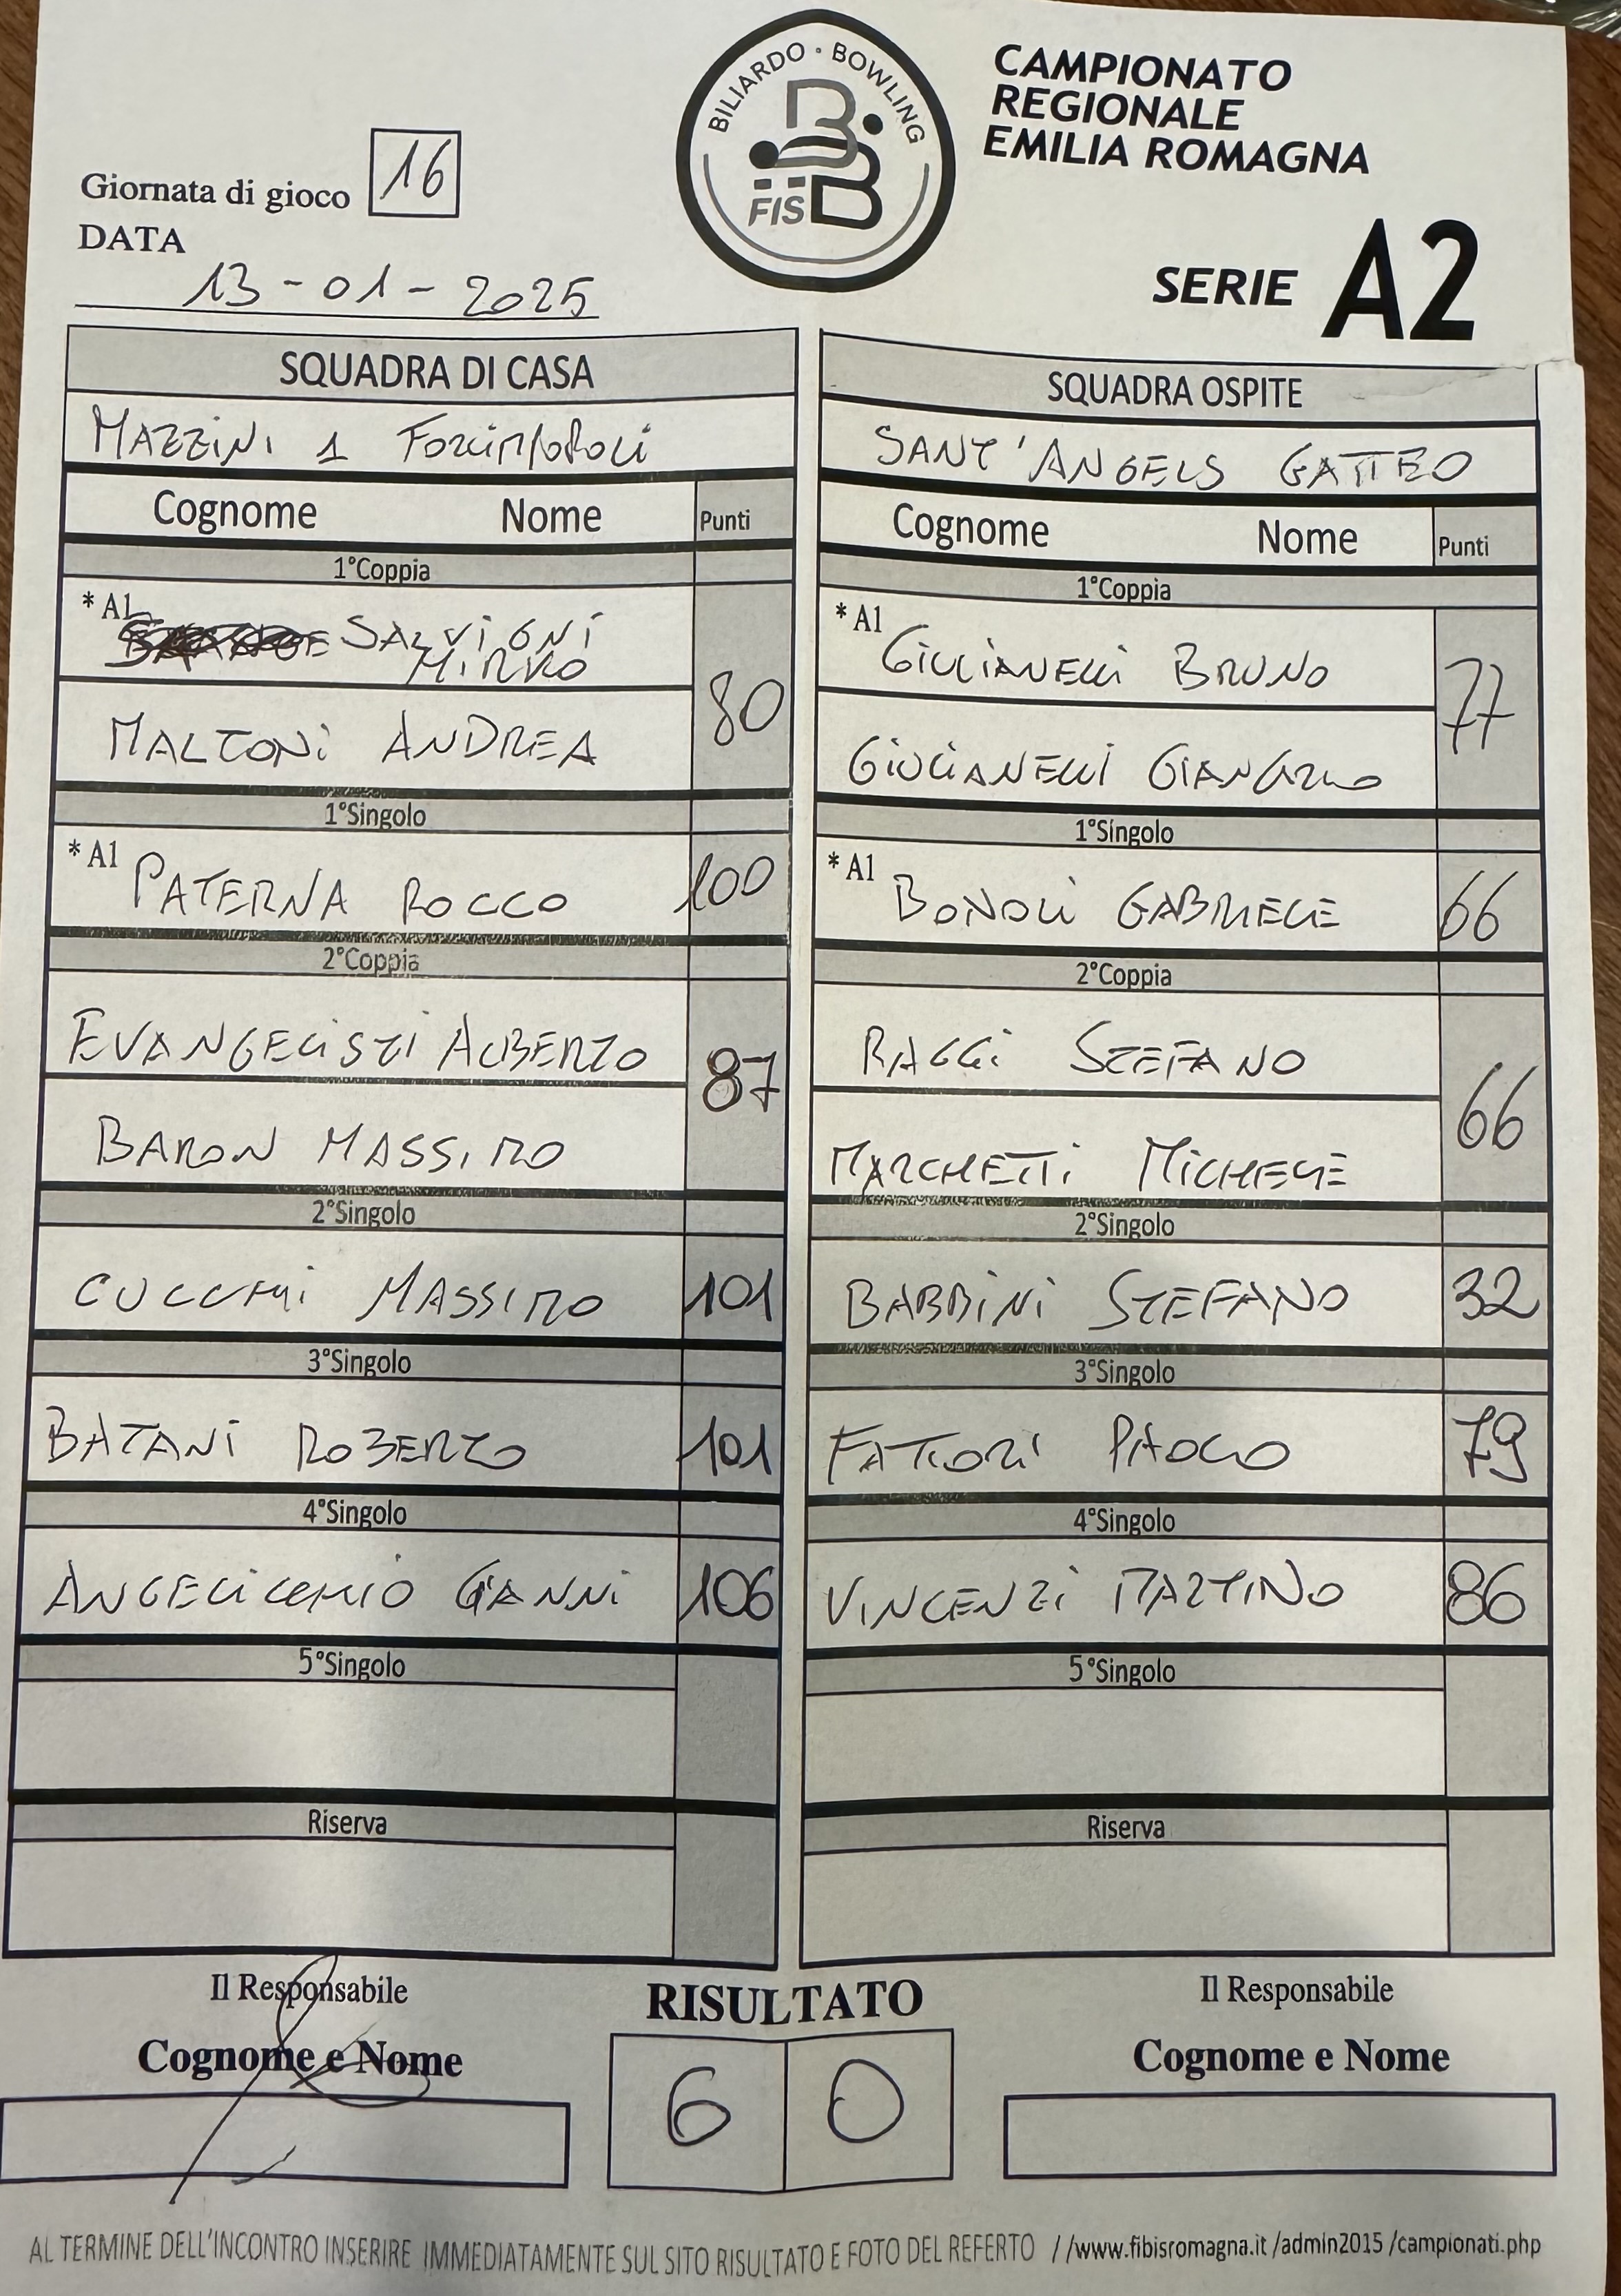 BILIARDO · BOWLING
FISBB
CAMPIONATO
REGIONALE
EMILIA ROMAGNA
SERIE A2
Giornata di gioco 16
DATA
13-01-2025
SQUADRA DI CASA
MAZZINI 1 FORLIMPOPOLI
Cognome Nome Punti
1°Coppia
*A1 SALVIGNI
MIRKO
80
MALTONI ANDREA
1°Singolo
*A1 PATERNA ROCCO 100
2°Coppia
EVANGELISTI ALBERTO
87
BARON MASSIMO
2°Singolo
CUCCHI MASSIMO 101
3°Singolo
BATANI ROBERTO 101
4°Singolo
ANGELICCHIO GIANNI 106
5°Singolo
Riserva
SQUADRA OSPITE
SANT'ANGELO GATTEO
Cognome Nome Punti
1°Coppia
*A1 GIULIANELLI BRUNO
77
GIULIANELLI GIANCARLO
1°Singolo
*A1 BONOLI GABRIELE 66
2°Coppia
RAGGI STEFANO
66
MARCHETTI MICHELE
2°Singolo
BABBINI STEFANO 32
3°Singolo
FATTORI PAOLO 79
4°Singolo
VINCENZI MARTINO 86
5°Singolo
Riserva
Il Responsabile
Cognome e Nome
RISULTATO
6 0
Il Responsabile
Cognome e Nome
AL TERMINE DELL'INCONTRO INSERIRE IMMEDIATAMENTE SUL SITO RISULTATO E FOTO DEL REFERTO //www.fibisromagna.it /admin2015 /campionati.php